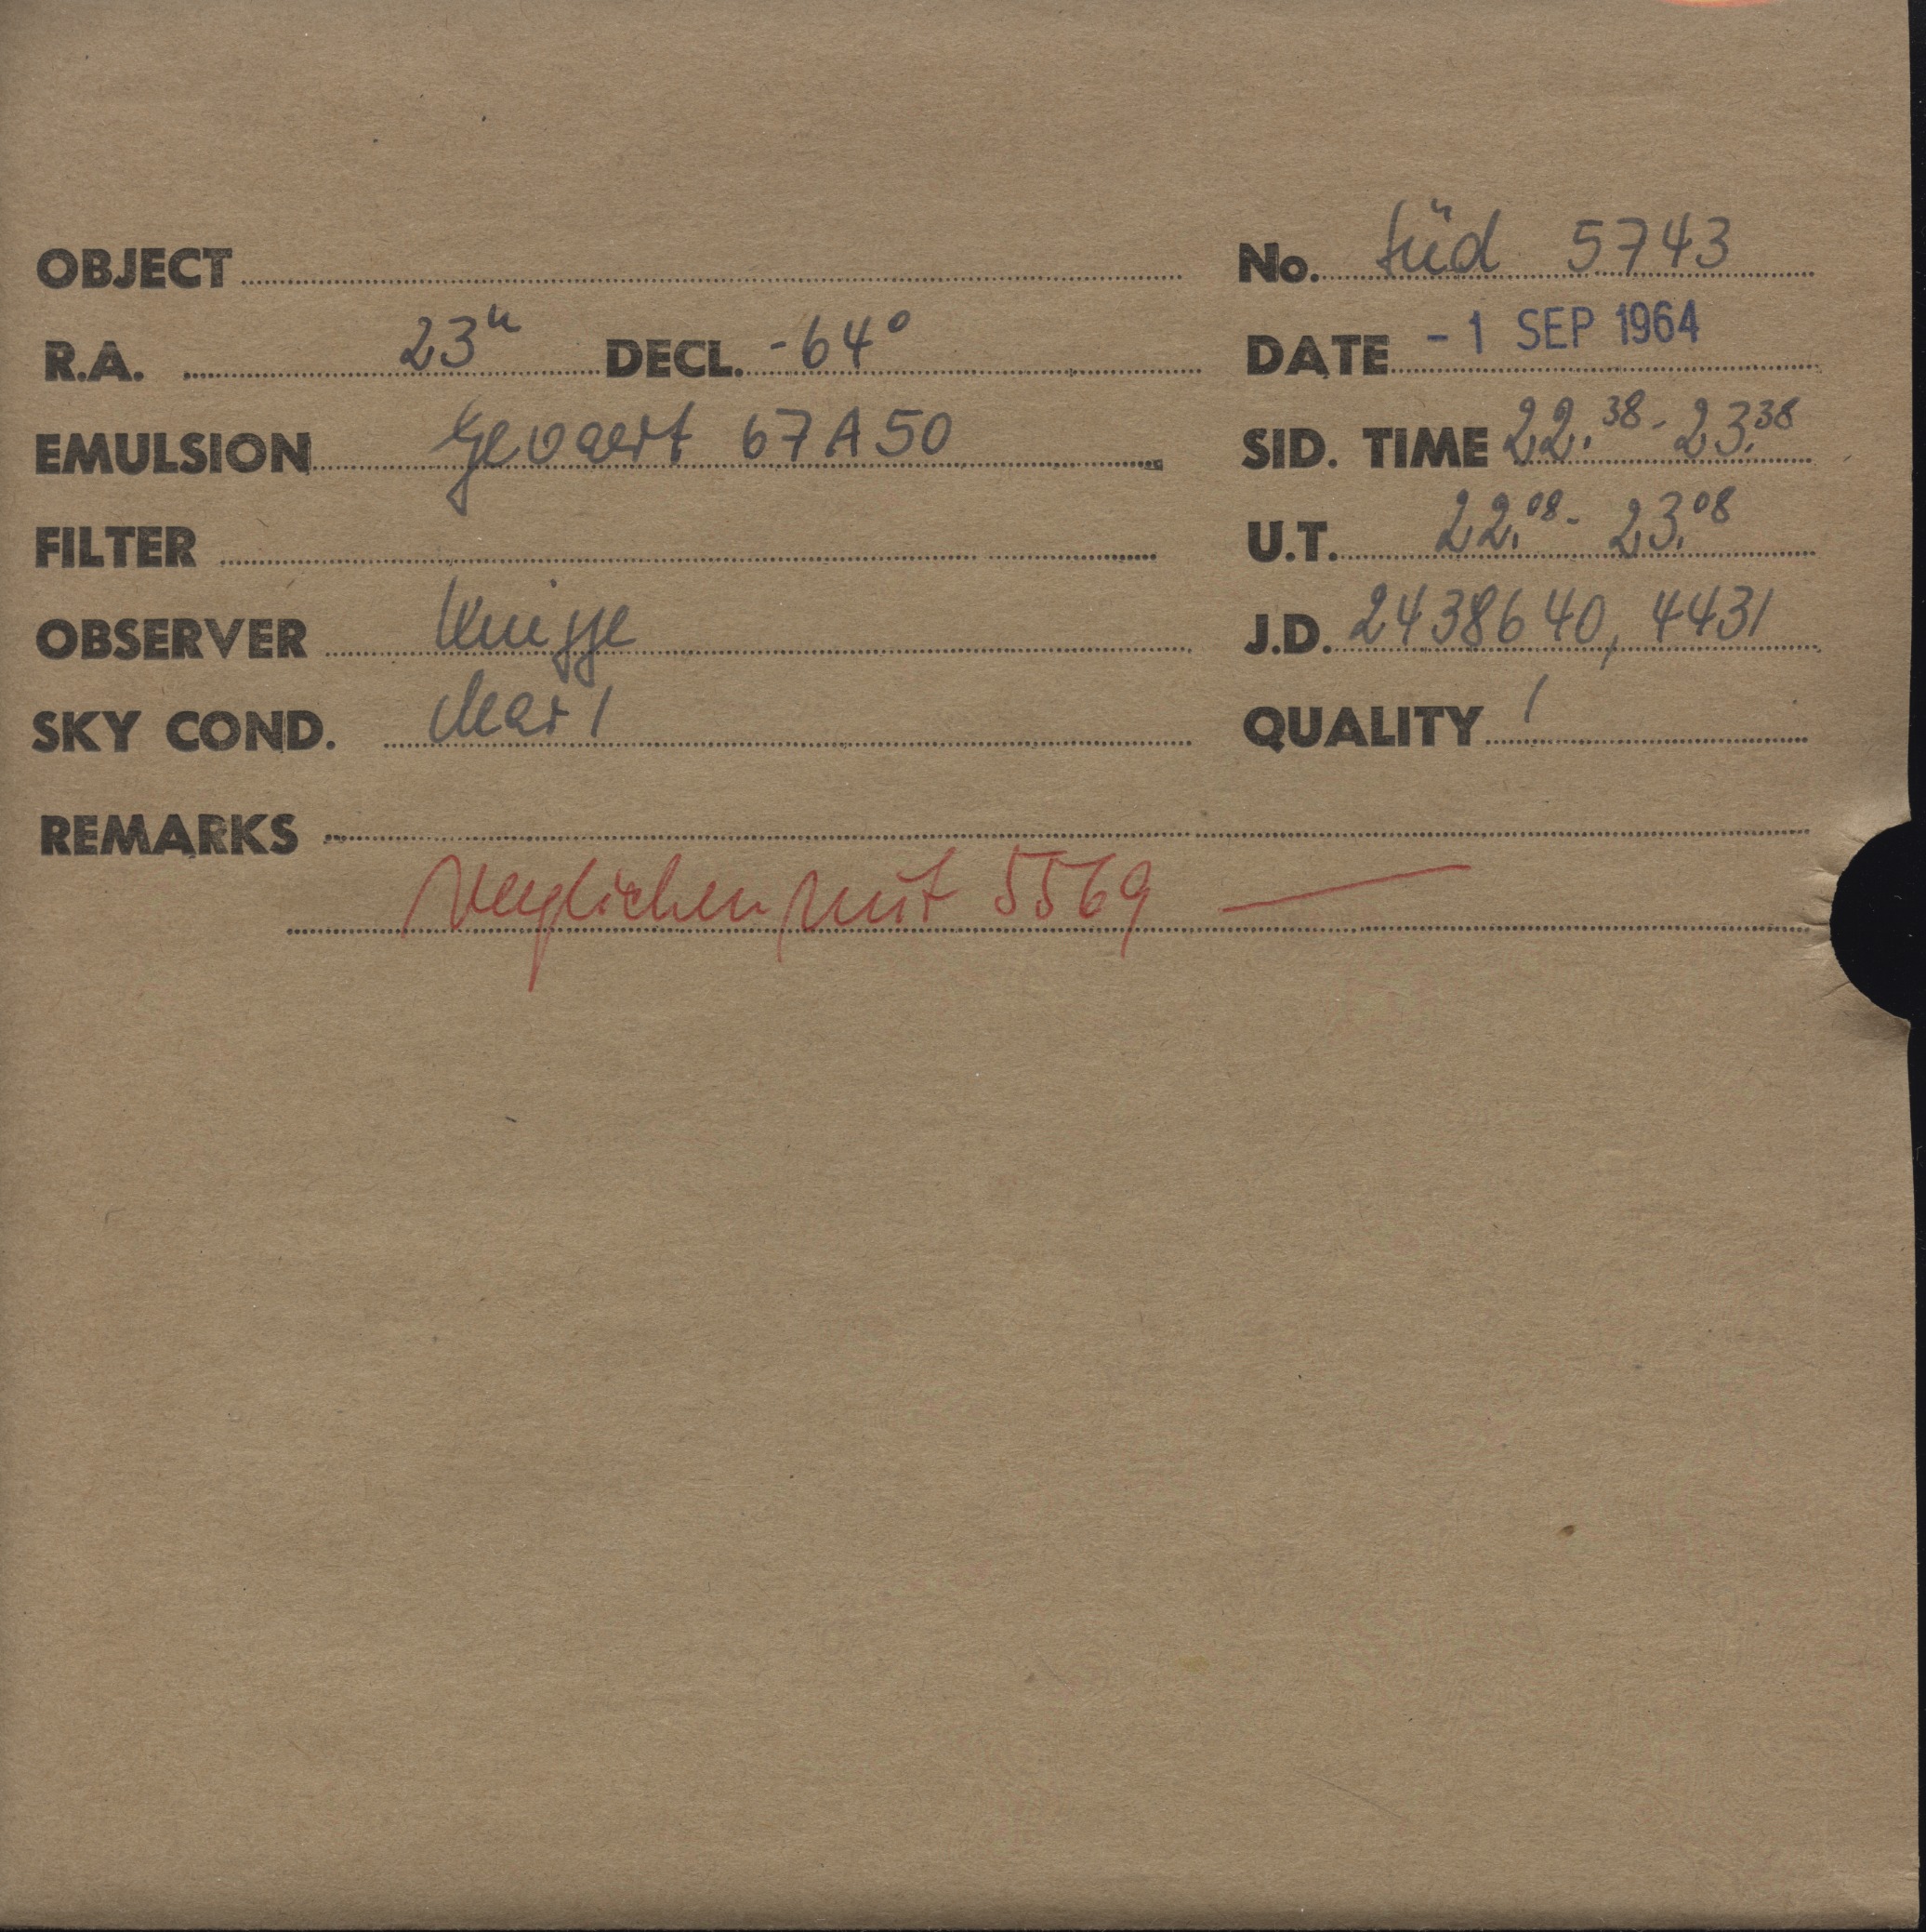 OBJECT No. Süd 5743
R.A. 23h DECL. -64° DATE -1 SEP 1964
EMULSION Gevaert 67A50 SID. TIME 22.38 - 23.38
FILTER U.T. 22.08 - 23.08
OBSERVER Knigge J.D. 2438640,4431
SKY COND. clear 1 QUALITY 1
REMARKS
verglichen mit 5569 —